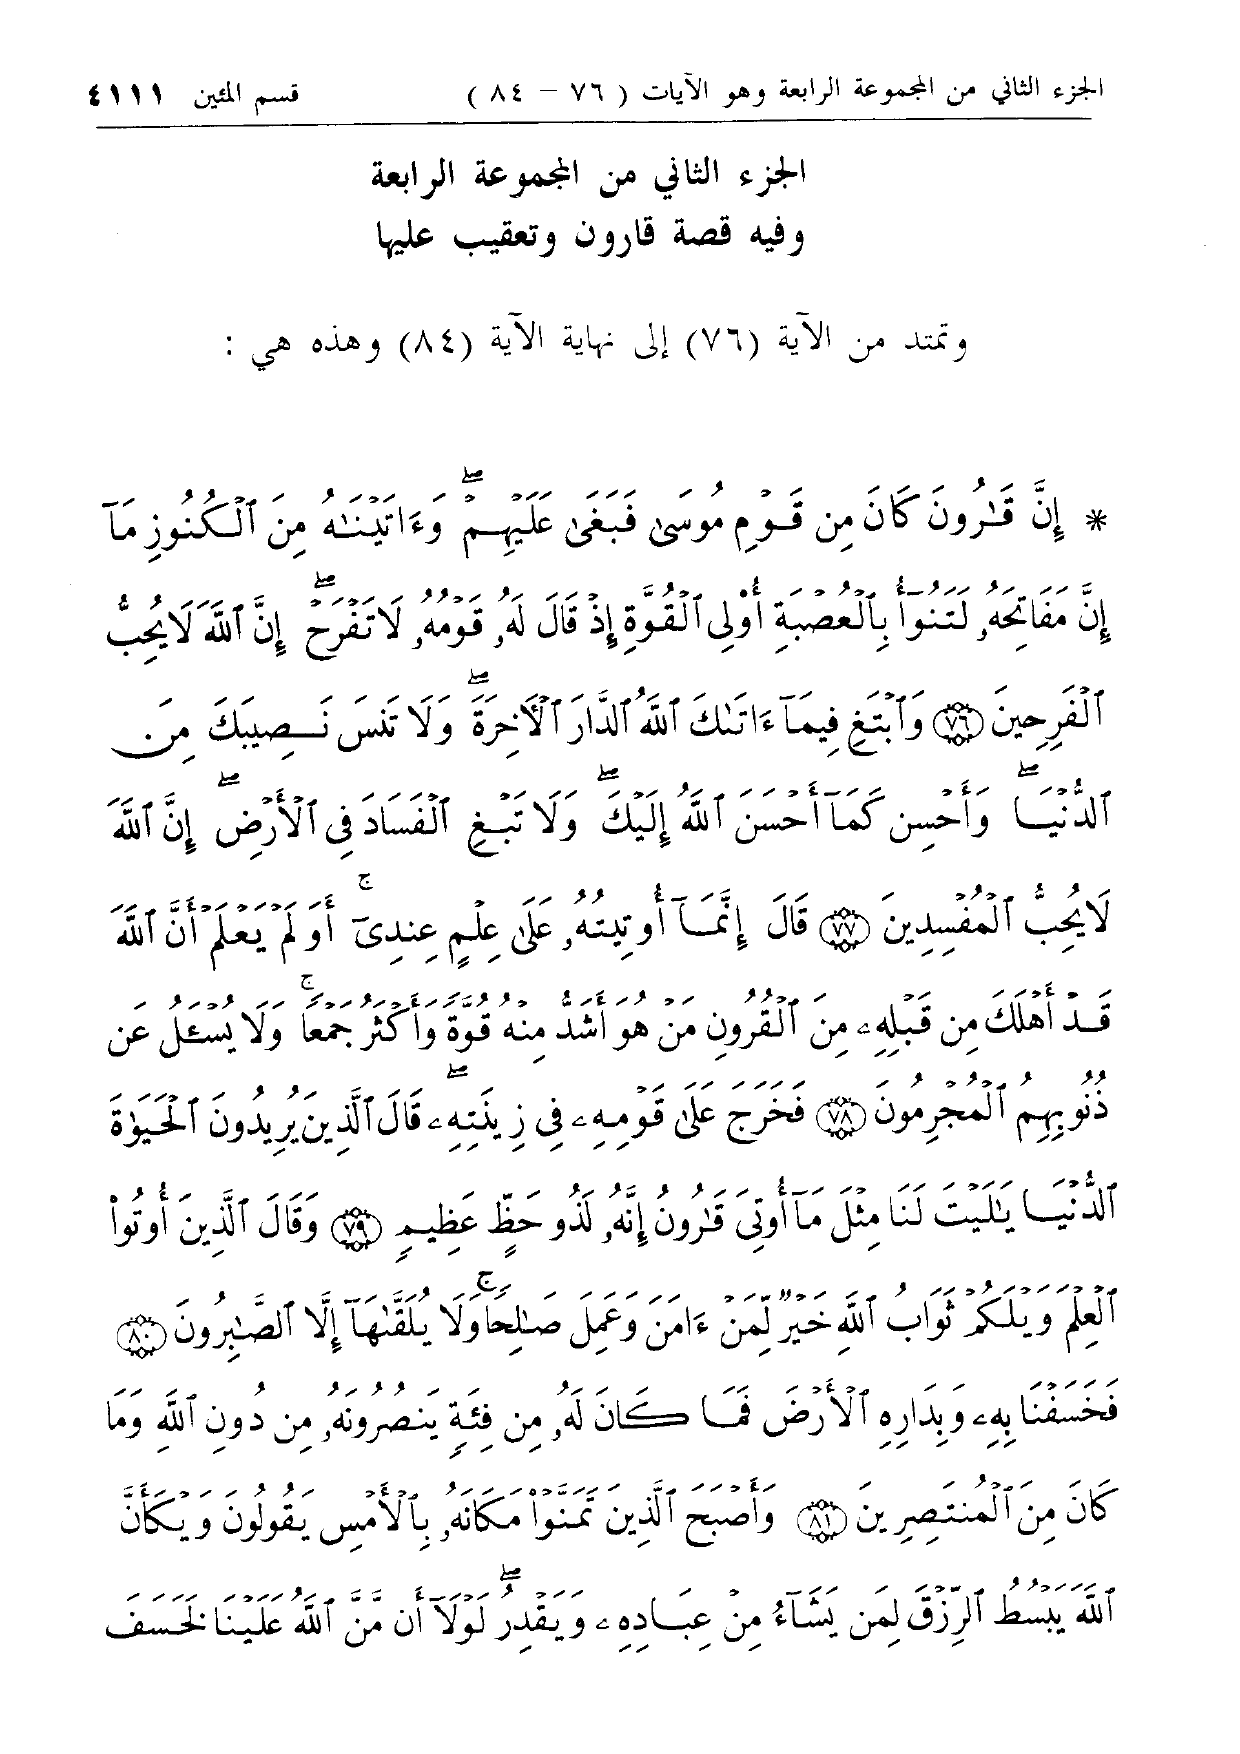 الجزء الثاني من المجموعة الرابعة وهو الآيات ( ٧٦ – ٨٤ ) قسم المئين ٤١١١
الجزء الثاني من المجموعة الرابعة
وفيه قصة قارون وتعقيب عليها
وتمتد من الآية (٧٦) إلى نهاية الآية (٨٤) وهذه هي :
* إِنَّ قَـٰرُونَ كَانَ مِن قَوْمِ مُوسَىٰ فَبَغَىٰ عَلَيْهِمْ ۖ وَءَاتَيْنَـٰهُ مِنَ ٱلْكُنُوزِ مَآ
إِنَّ مَفَاتِحَهُۥ لَتَنُوٓأُ بِٱلْعُصْبَةِ أُوْلِى ٱلْقُوَّةِ إِذْ قَالَ لَهُۥ قَوْمُهُۥ لَا تَفْرَحْ ۖ إِنَّ ٱللَّهَ لَا يُحِبُّ
ٱلْفَرِحِينَ ﴿٧٦﴾ وَٱبْتَغِ فِيمَآ ءَاتَىٰكَ ٱللَّهُ ٱلدَّارَ ٱلْأَخِرَةَ ۖ وَلَا تَنسَ نَصِيبَكَ مِنَ
ٱلدُّنْيَا ۖ وَأَحْسِن كَمَآ أَحْسَنَ ٱللَّهُ إِلَيْكَ ۖ وَلَا تَبْغِ ٱلْفَسَادَ فِى ٱلْأَرْضِ ۖ إِنَّ ٱللَّهَ
لَا يُحِبُّ ٱلْمُفْسِدِينَ ﴿٧٧﴾ قَالَ إِنَّمَآ أُوتِيتُهُۥ عَلَىٰ عِلْمٍ عِندِىٓ ۚ أَوَلَمْ يَعْلَمْ أَنَّ ٱللَّهَ
قَدْ أَهْلَكَ مِن قَبْلِهِۦ مِنَ ٱلْقُرُونِ مَنْ هُوَ أَشَدُّ مِنْهُ قُوَّةً وَأَكْثَرُ جَمْعًا ۚ وَلَا يُسْـَٔلُ عَن
ذُنُوبِهِمُ ٱلْمُجْرِمُونَ ﴿٧٨﴾ فَخَرَجَ عَلَىٰ قَوْمِهِۦ فِى زِينَتِهِۦ ۖ قَالَ ٱلَّذِينَ يُرِيدُونَ ٱلْحَيَوٰةَ
ٱلدُّنْيَا يَـٰلَيْتَ لَنَا مِثْلَ مَآ أُوتِىَ قَـٰرُونُ إِنَّهُۥ لَذُو حَظٍّ عَظِيمٍ ﴿٧٩﴾ وَقَالَ ٱلَّذِينَ أُوتُواْ
ٱلْعِلْمَ وَيْلَكُمْ ثَوَابُ ٱللَّهِ خَيْرٌ لِّمَنْ ءَامَنَ وَعَمِلَ صَـٰلِحًا ۚ وَلَا يُلَقَّىٰهَآ إِلَّا ٱلصَّـٰبِرُونَ ﴿٨٠﴾
فَخَسَفْنَا بِهِۦ وَبِدَارِهِ ٱلْأَرْضَ فَمَا كَانَ لَهُۥ مِن فِئَةٍ يَنصُرُونَهُۥ مِن دُونِ ٱللَّهِ وَمَا
كَانَ مِنَ ٱلْمُنتَصِرِينَ ﴿٨١﴾ وَأَصْبَحَ ٱلَّذِينَ تَمَنَّوْاْ مَكَانَهُۥ بِٱلْأَمْسِ يَقُولُونَ وَيْكَأَنَّ
ٱللَّهَ يَبْسُطُ ٱلرِّزْقَ لِمَن يَشَآءُ مِنْ عِبَادِهِۦ وَيَقْدِرُ ۖ لَوْلَآ أَن مَّنَّ ٱللَّهُ عَلَيْنَا لَخَسَفَ